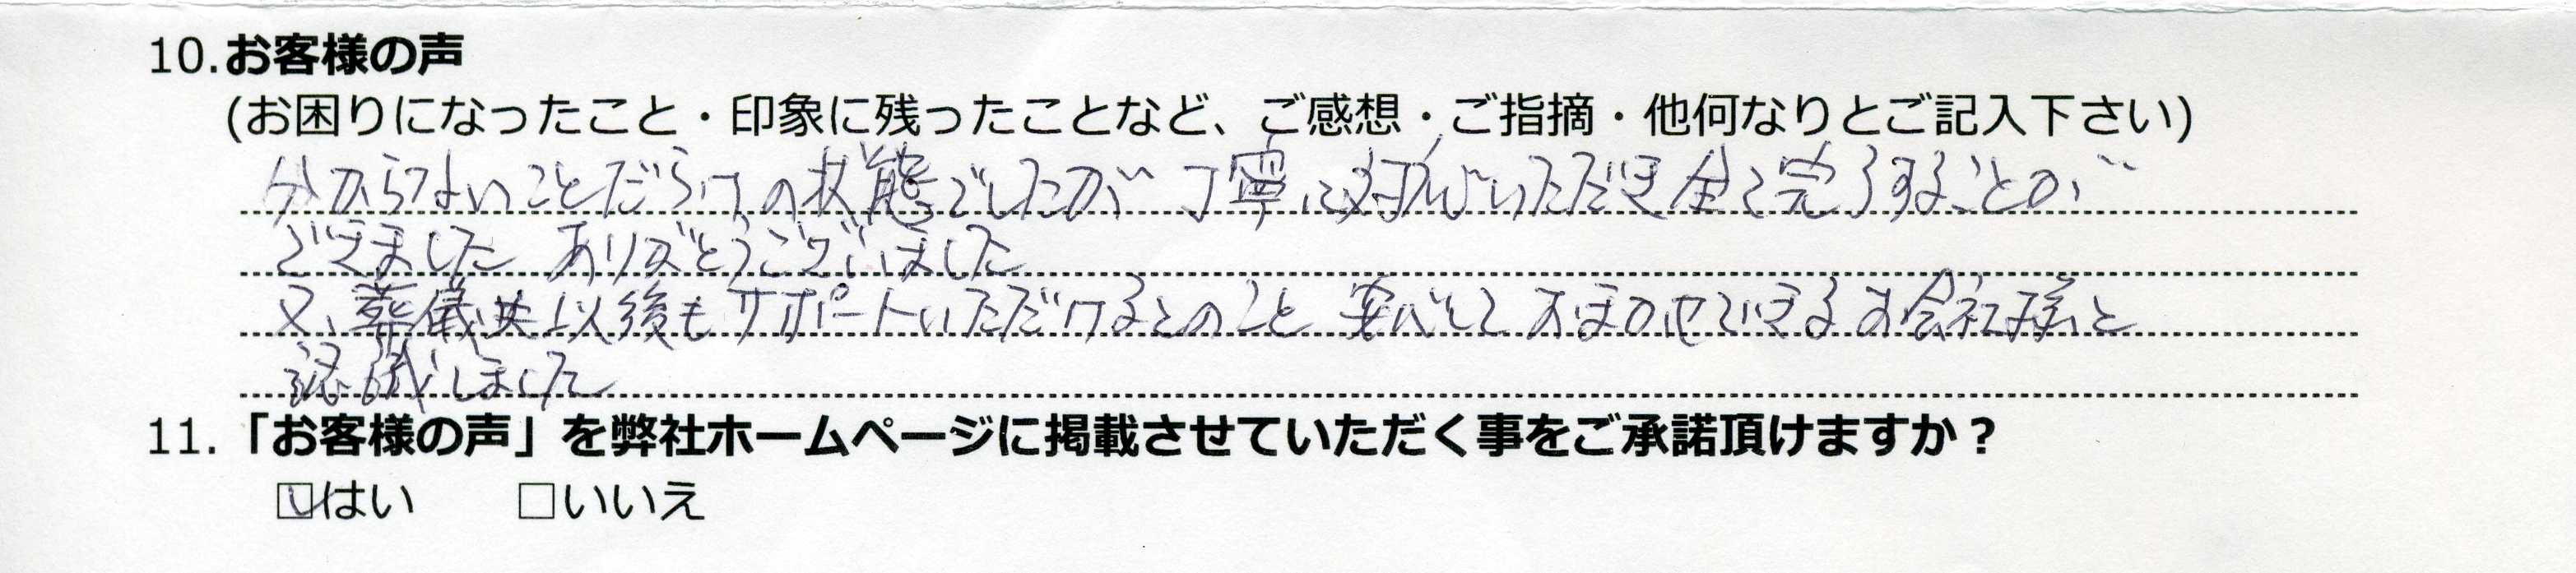 10.お客様の声
(お困りになったこと・印象に残ったことなど、ご感想・ご指摘・他何なりとご記入下さい)
分からないことだらけの状態でしたが 丁寧に対応いただき全て完了することが
できました ありがとうございました
又、葬儀 以後もサポートいただけるとのこと 安心して おまかせできるお会社様と
認識しました
11.「お客様の声」を弊社ホームページに掲載させていただく事をご承諾頂けますか？
☑はい □いいえ